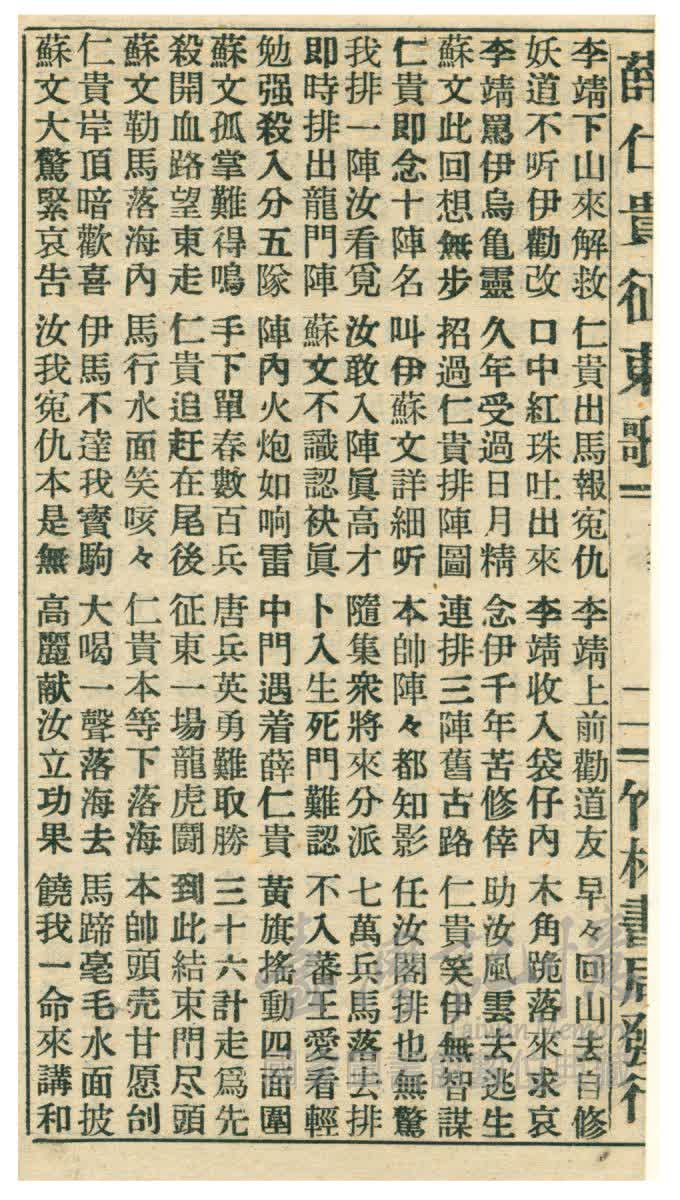 薛仁貴征東歌 二一 竹林書局發行
李靖下山來解救 仁貴出馬報寃仇 李靖上前勸道友 早々回山去自修
妖道不听伊勸改 口中紅珠吐出來 李靖收入袋仔內 木角跪落來求哀
李靖罵伊烏亀靈 久年受過日月精 念伊千年苦修倖 助汝風雲去逃生
蘇文此回想無步 招過仁貴排陣圖 連排三陣舊古路 仁貴笑伊無智謀
仁貴即念十陣名 叫伊蘇文詳細听 本帥陣々都知影 任汝閣排也無驚
我排一陣汝看覓 汝敢入陣眞高才 隨集衆將來分派 七萬兵馬落去排
即時排出龍門陣 蘇文不識認袂眞 卜入生死門難認 不入蕃王愛看輕
勉强殺入分五隊 陣內火炮如响雷 中門遇着薛仁貴 黄旗搖動四面圍
蘇文孤掌難得鳴 手下單春數百兵 唐兵英勇難取勝 三十六計走爲先
殺開血路望東走 仁貴追赶在尾後 征東一場龍虎鬪 到此結束門尽頭
蘇文勒馬落海內 馬行水面笑咳々 仁貴本等下落海 本帥頭壳甘愿刣
仁貴岸頂暗歡喜 伊馬不達我寳駒 大喝一聲落海去 馬蹄毫毛水面披
蘇文大驚緊哀告 汝我寃仇本是無 高麗献汝立功果 饒我一命來講和
臺灣記憶
Taiwan Memory